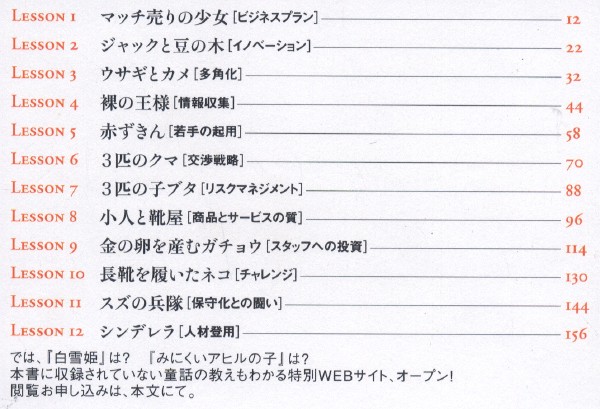 LESSON 1 マッチ売りの少女[ビジネスプラン] 12
LESSON 2 ジャックと豆の木[イノベーション] 22
LESSON 3 ウサギとカメ[多角化] 32
LESSON 4 裸の王様[情報収集] 44
LESSON 5 赤ずきん[若手の起用] 58
LESSON 6 3匹のクマ[交渉戦略] 70
LESSON 7 3匹の子ブタ[リスクマネジメント] 88
LESSON 8 小人と靴屋[商品とサービスの質] 96
LESSON 9 金の卵を産むガチョウ[スタッフへの投資] 114
LESSON 10 長靴を履いたネコ[チャレンジ] 130
LESSON 11 スズの兵隊[保守化との闘い] 144
LESSON 12 シンデレラ[人材登用] 156
では、『白雪姫』は? 『みにくいアヒルの子』は?
本書に収録されていない童話の教えもわかる特別WEBサイト、オープン!
閲覧お申し込みは、本文にて。